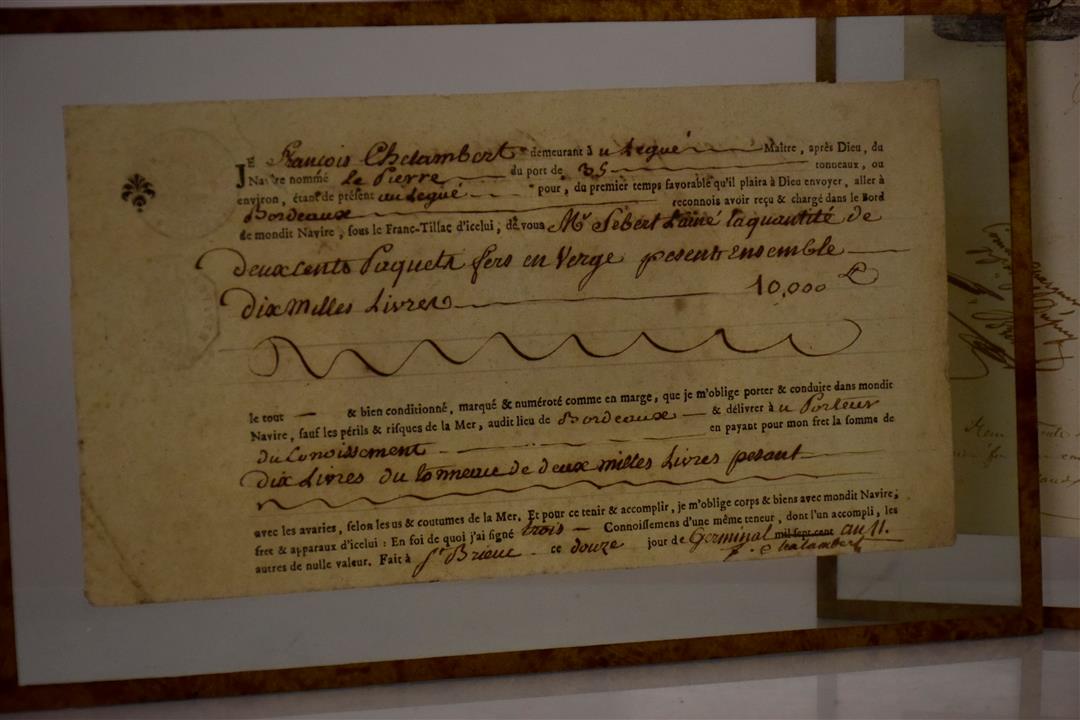 JE François Chelambert demeurant à u Legué Maître, après Dieu, du
Navire nommé Le Pierre du port de 35 tonneaux, ou
environ, étant de présent au Legué pour, du premier temps favorable qu'il plaira à Dieu envoyer, aller à
Bordeaux reconnois avoir reçu & chargé dans le Bord
de mondit Navire, sous le Franc-Tillac d'icelui, de vous Mr Sebert Lainé la quantité de
Deux Cents Paquets fers en Verge pesent Ensemble
Dix Milles Livres 10,000 L
le tout & bien conditionné, marqué & numéroté comme en marge, que je m'oblige porter & conduire dans mondit
Navire, sauf les périls & risques de la Mer, audit lieu de Bordeaux & délivrer à u Porteur
du Conoissement en payant pour mon fret la somme de
Dix Livres du tonneau de deux milles Livres pesant
avec les avaries, selon les us & coutumes de la Mer. Et pour ce tenir & accomplir, je m'oblige corps & biens avec mondit Navire,
fret & apparaux d'icelui : En foi de quoi j'ai signé trois Connoissemens d'une même teneur, dont l'un accompli, les
autres de nulle valeur. Fait à St Brieuc ce douze jour de Germinal mil sept cent an 11.
f. Chalambert